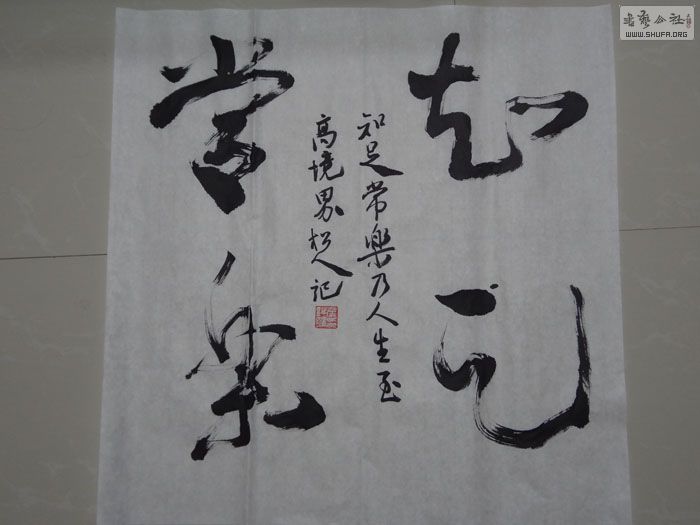 知足
常樂
知足常樂乃人生至
高境界松人记
書藝公社
WWW.SHUFA.ORG